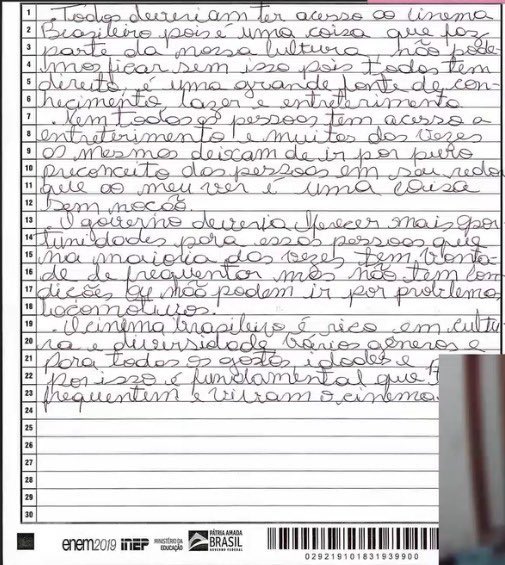 Todos deveriam ter acesso ao cinema
Brasileiro pois é uma coisa que faz
parte da nossa cultura, não pode-
mos ficar sem isso pois todos tem
direito, é uma grande fonte de con-
hecimento, lazer e entreterimento
Nem todas as pessoas tem acesso a
entreterimento e muitas das vezes
os mesmos deixam de ir por puro
preconceito das pessoas em seu redor
que ao meu ver é uma coisa
sem noção.
O governo deveria oferecer mais opor
tunidades para essas pessoas que
na maioria das vezes tem vonta-
de de frequentar mas não tem con
dições ou não podem ir por problema
locomotivos.
O cinema brasileiro é rico em cultu
ra e diversidade vários gêneros e
para todos os gostos idades e
por isso é fundamental que
frequentem e vivam o cinema.
1
2
3
4
5
6
7
8
9
10
11
12
13
14
15
16
17
18
19
20
21
22
23
24
25
26
27
28
29
30
enem2019 inep MINISTÉRIO DA EDUCAÇÃO PÁTRIA AMADA BRASIL GOVERNO FEDERAL
029219101831939900